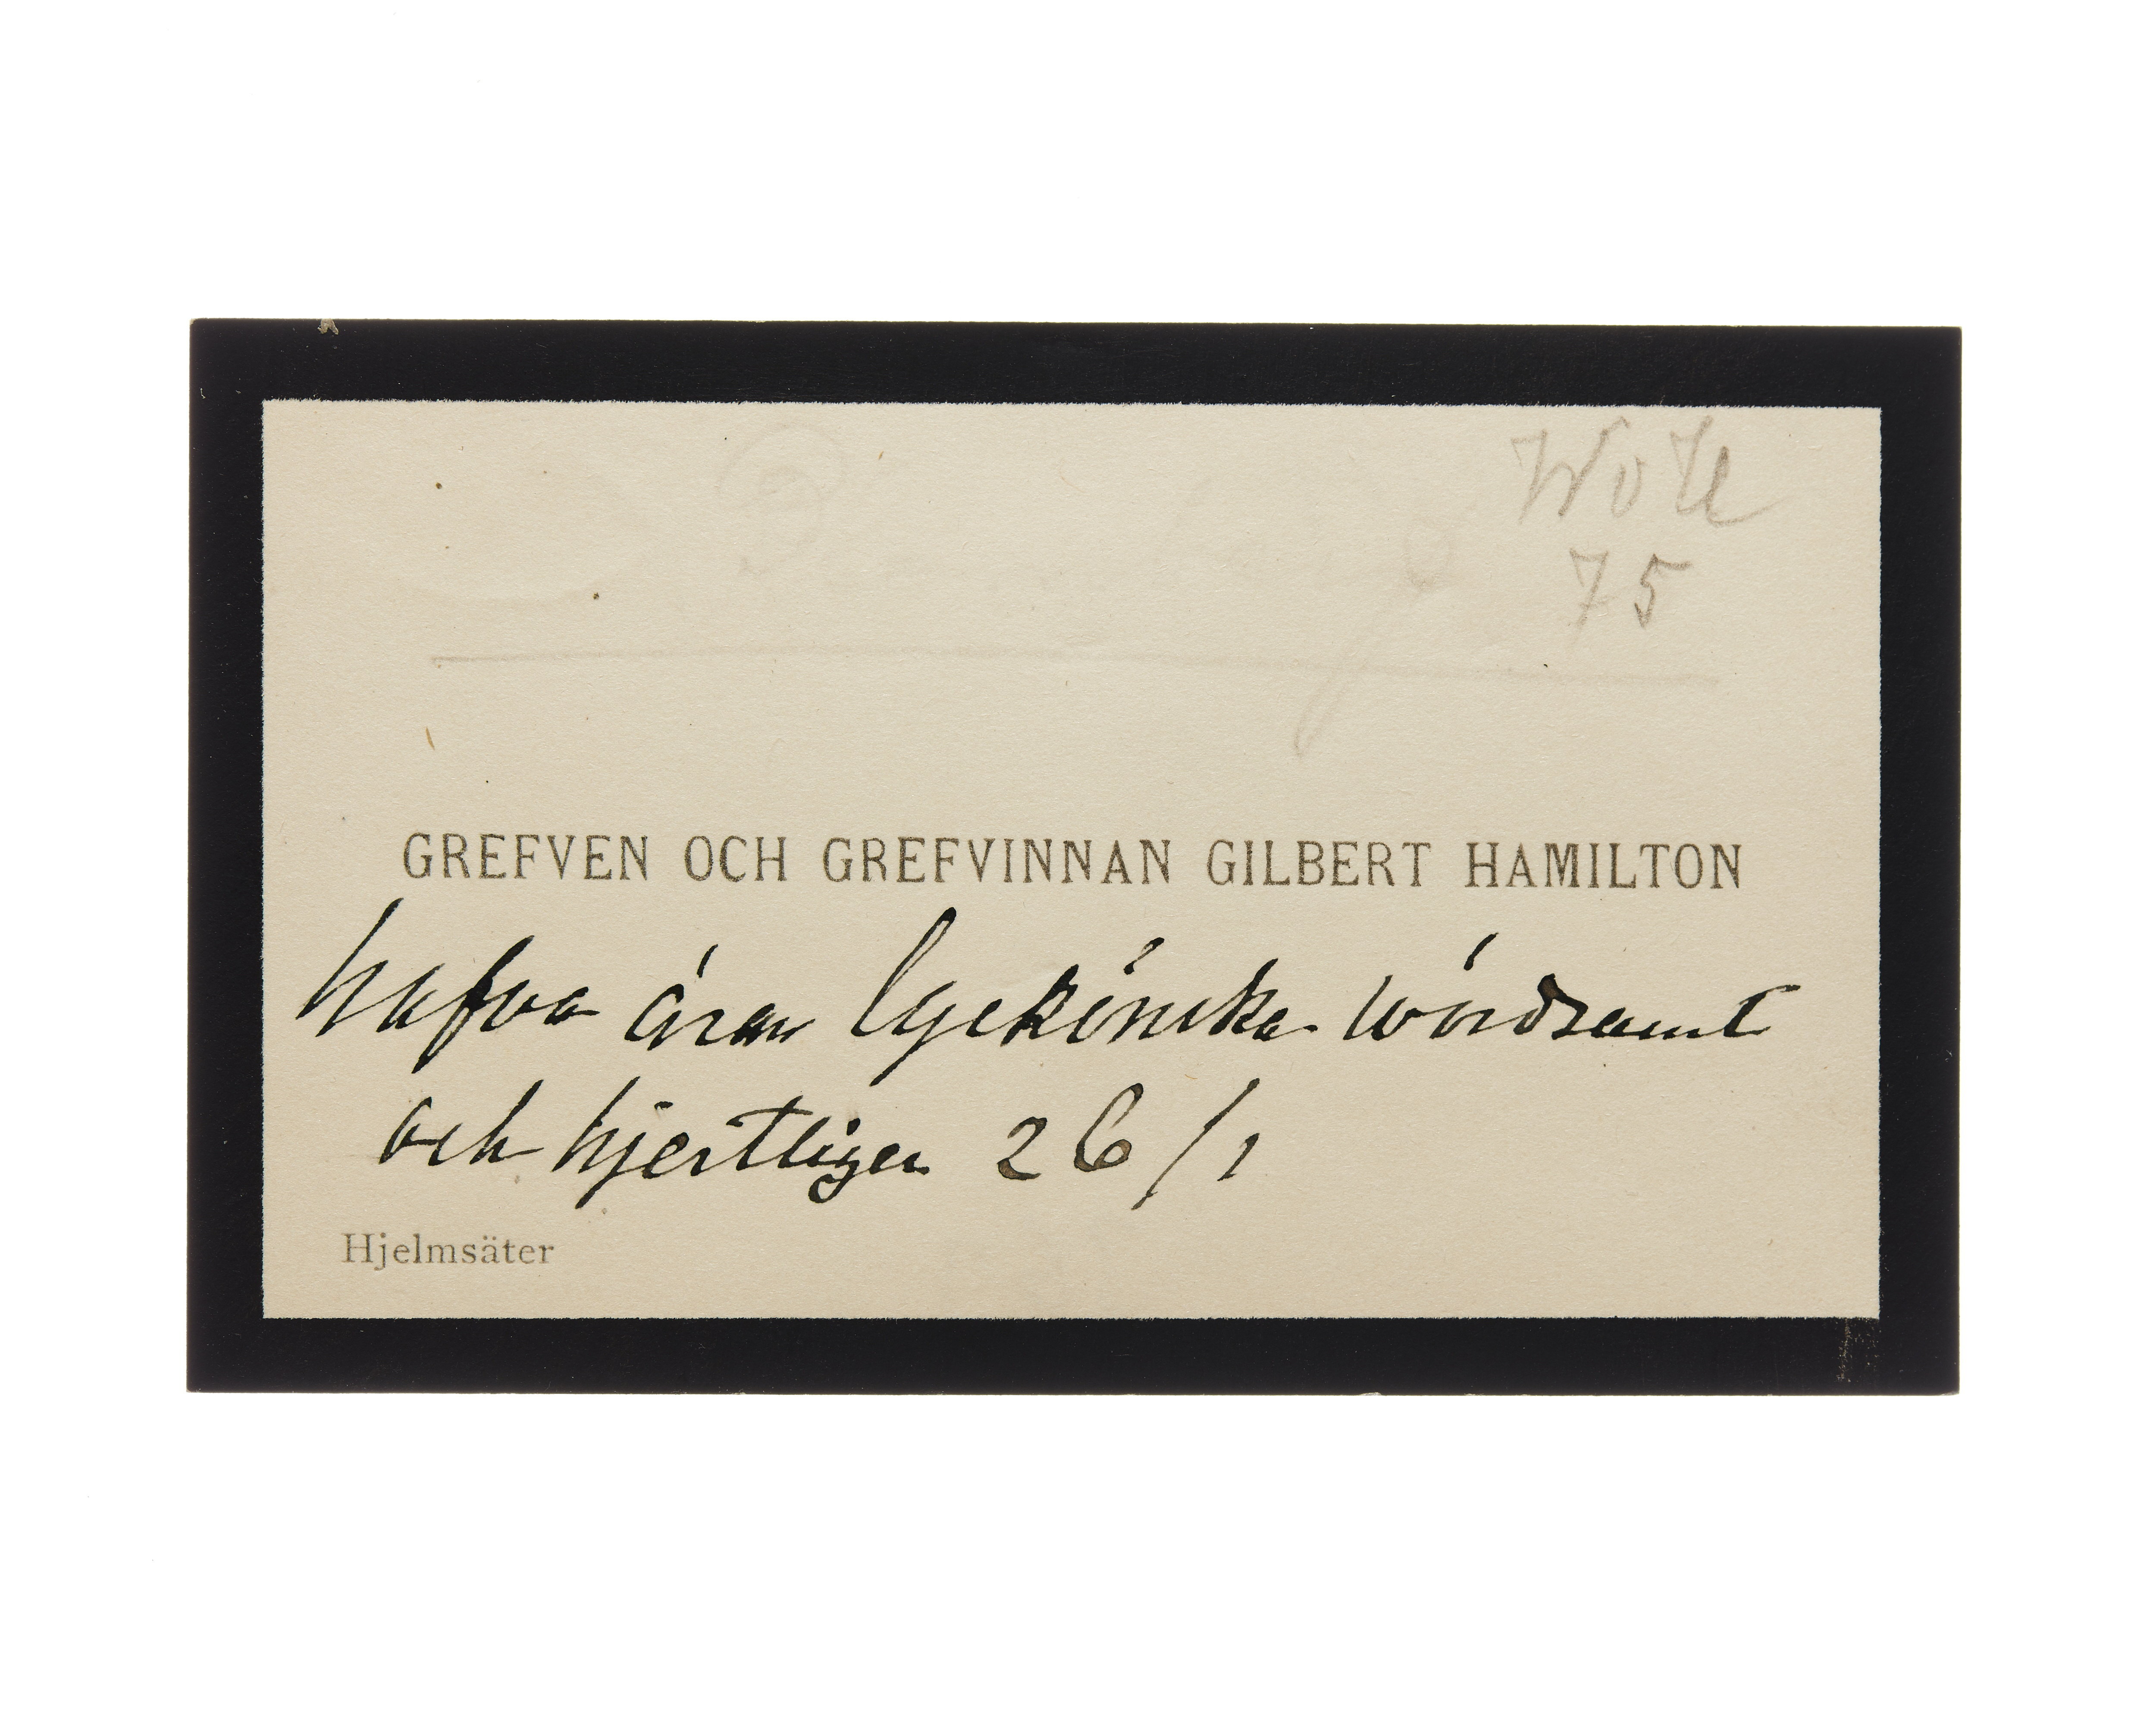 75
GREFVEN OCH GREFVINNAN GILBERT HAMILTON
hafva äran lyckönska wördsamt
och hjertligen 26/1
Hjelmsäter